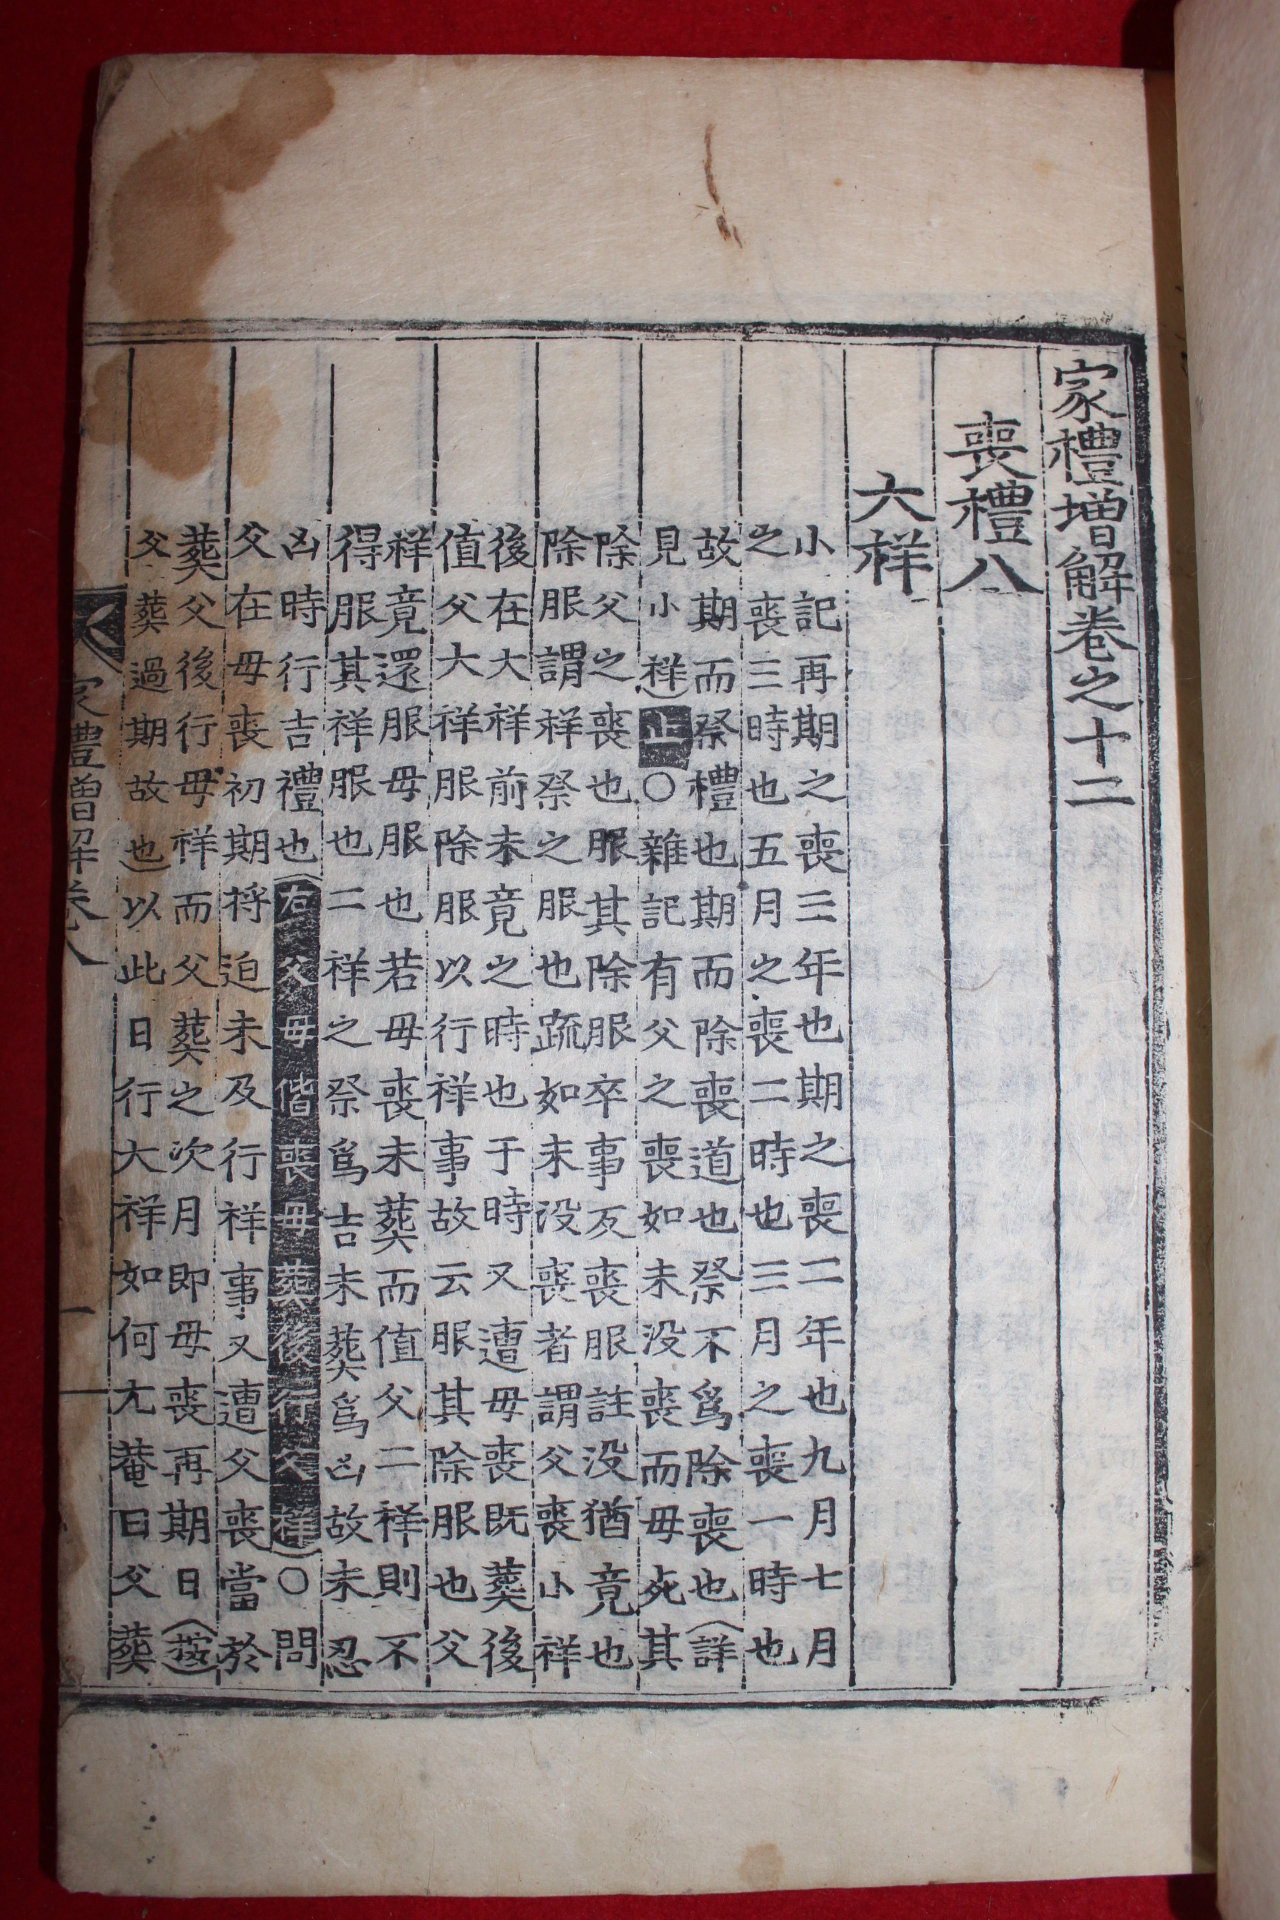 家禮增解卷之十二
喪禮八
六祥
小記再期之喪三年也期之喪二年也九月七月
之喪三時也五月之喪二時也三月之喪一時也
故期而祭禮也期而除喪道也祭不爲除喪也(詳
見小祥止○雜記有父之喪如未没喪而母死其
除父之喪也服其除服卒事反喪服註没猶竟也
除服謂祥祭之服也疏如未没喪者謂父喪小祥
後在大祥前未竟之時也于時又遭母喪既葬後
值父大祥服除服以行祥事故云服其除服也父
祥竟還服母服也若母喪未葬而值父二祥則不
得服其祥服也二祥之祭爲吉未葬爲凶故未忍
凶時行吉禮也(右父母偕喪母葬後行父祥)○問
父在母喪初期將迫未及行祥事又遭父喪當於
葬父後行母祥而父葬之次月即母喪再期日(按
父葬過期故也以此日行大祥如何尤菴曰父葬
家禮增解卷八 一